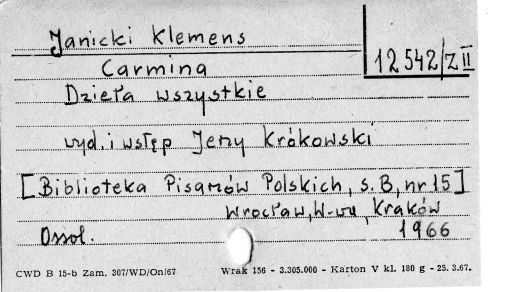 Janicki Klemens
12542/Z II
Carmina
Dzieła wszystkie
wyd. i wstęp Jerzy Krókowski
[Biblioteka Pisarzów Polskich, s. B, nr 15]
Wrocław, W-wa, Kraków
Ossol. 1966
CWD B 15-b Zam. 307/WD/On/67 Wrak 156 - 3.305.000 - Karton V kl. 180 g - 25. 3.67.